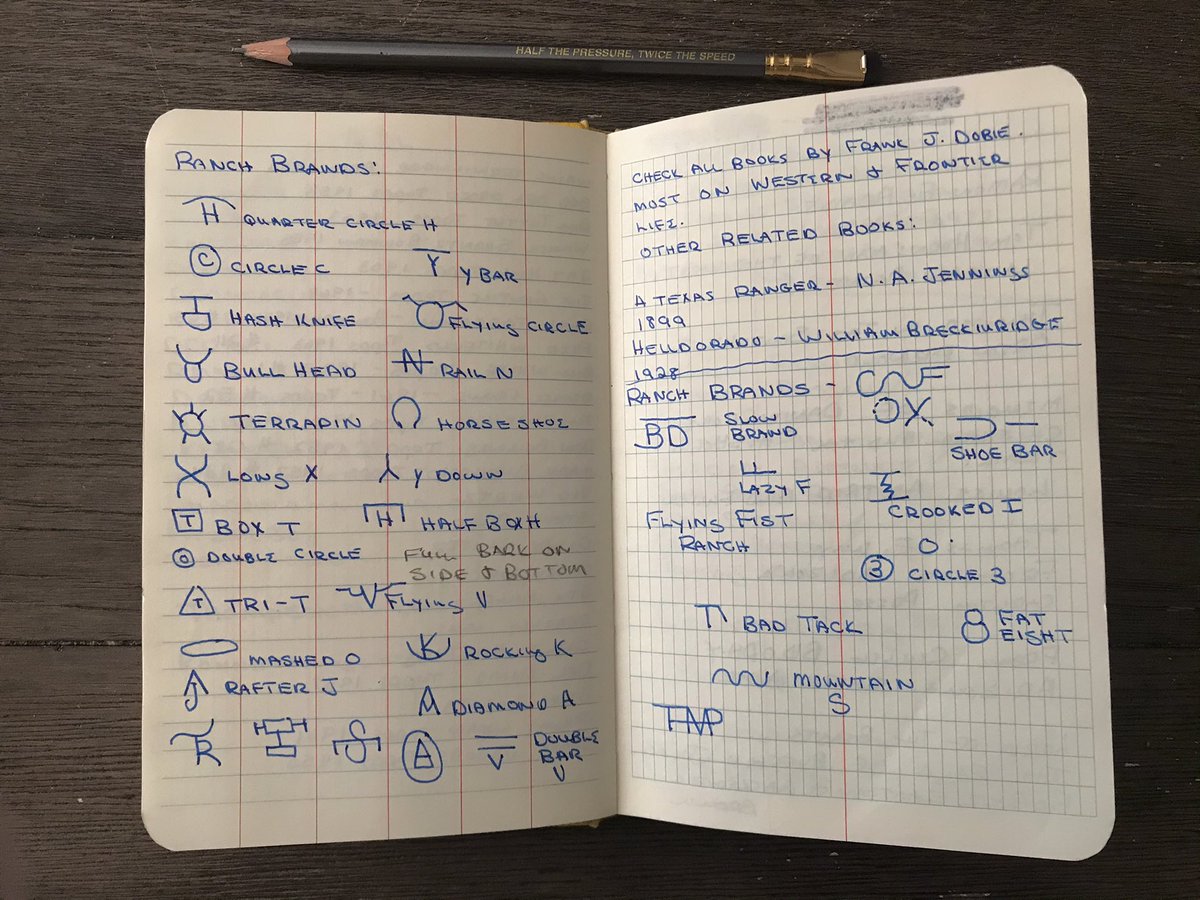 HALF THE PRESSURE, TWICE THE SPEED
RANCH BRANDS:
H QUARTER CIRCLE H
C CIRCLE C
Y Y BAR
HASH KNIFE
FLYING CIRCLE
BULL HEAD
N RAIL N
TERRAPIN
HORSE SHOE
LONG X
Y DOWN
T BOX T
H HALF BOX H
DOUBLE CIRCLE
FULL BARK ON
SIDE & BOTTOM
T TRI-T
V FLYING V
MASHED O
K ROCKING K
J RAFTER J
A DIAMOND A
R
S
A
V
DOUBLE
BAR
V
CHECK ALL BOOKS BY FRANK J. DOBIE.
MOST ON WESTERN & FRONTIER
LIFE.
OTHER RELATED BOOKS:
A TEXAS RANGER - N. A. JENNINGS
1899
HELLDORADO - WILLIAM BRECKINRIDGE
1928
RANCH BRANDS -
OX
BD
SLOW
BRAND
SHOE BAR
LAZY F
CROOKED I
FLYING FIST
RANCH
3 CIRCLE 3
BAD TACK
8 FAT
EIGHT
MOUNTAIN
S